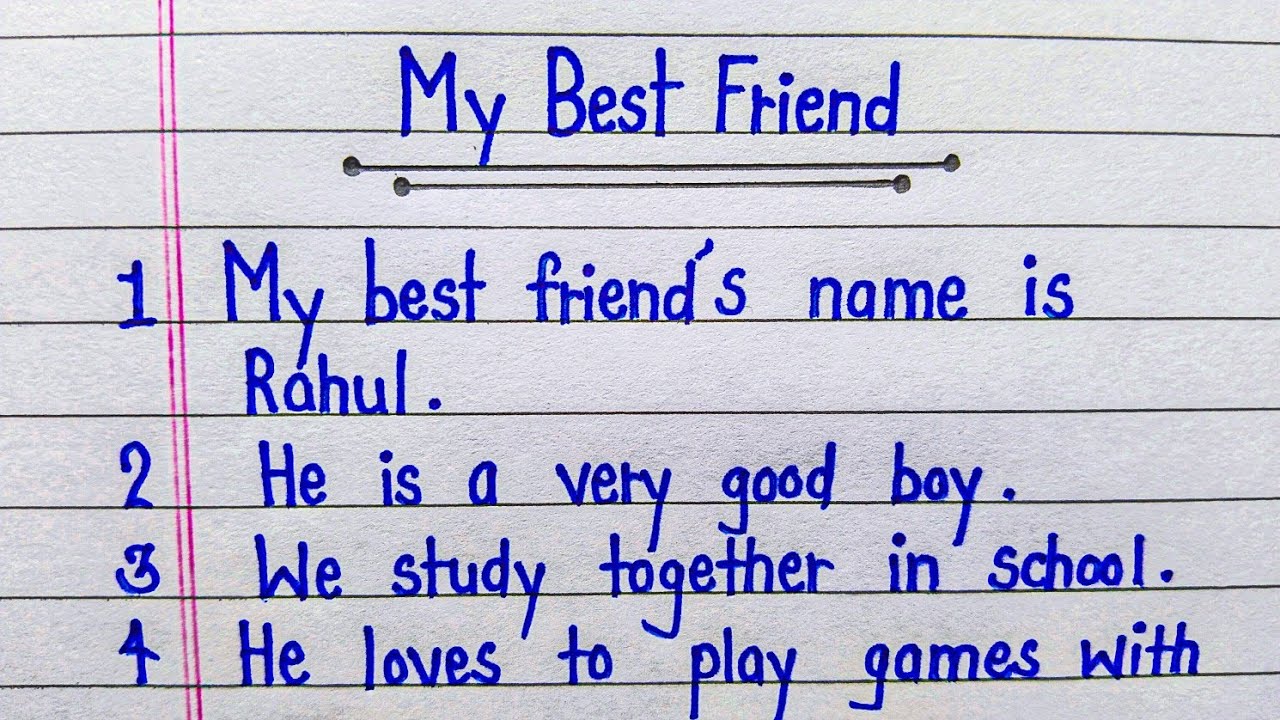 My Best Friend
1 My best friend's name is
Rahul.
2 He is a very good boy.
3 We study together in school.
4 He loves to play games with